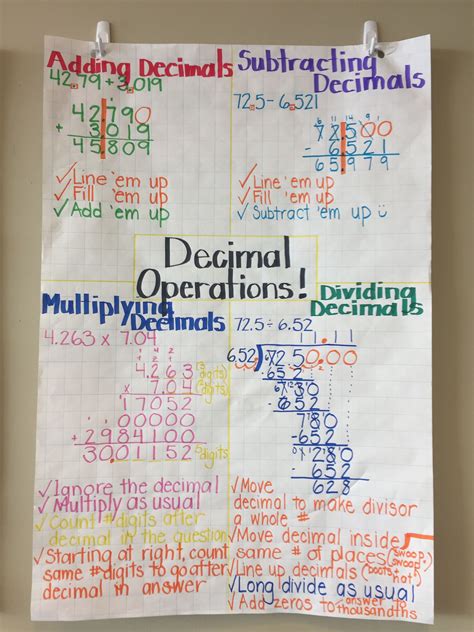 Adding Decimals
42.79 + 3.019
42.790
+ 3.019
45.809
✓Line 'em up
✓Fill 'em up
✓Add 'em up
Subtracting
Decimals
72.5 - 6.521
72.500
- 6.521
65.979
✓Line 'em up
✓Fill 'em up
✓Subtract 'em up
Decimal
Operations!
Multiplying
Decimals
4.263 x 7.04
4.263 (3 digits)
x 7.04 (2 digits)
17052
00000
+ 2984100
30.01152
5 digits
✓Ignore the decimal
✓Multiply as usual
✓Count # digits after
decimal in the question
✓Starting at right, count
same # digits to go after
decimal in answer
Dividing
Decimals
72.5 ÷ 6.52
11.11
652. 7250.00
- 652
730
- 652
780
- 652
1280
- 652
628
✓Move
decimal to make divisor
a whole #
✓Move decimal inside
same # of places (swoop, swoop)
✓Line up decimals (boots + hat)
✓Long divide as usual
✓Add zeros to answer to thousandths